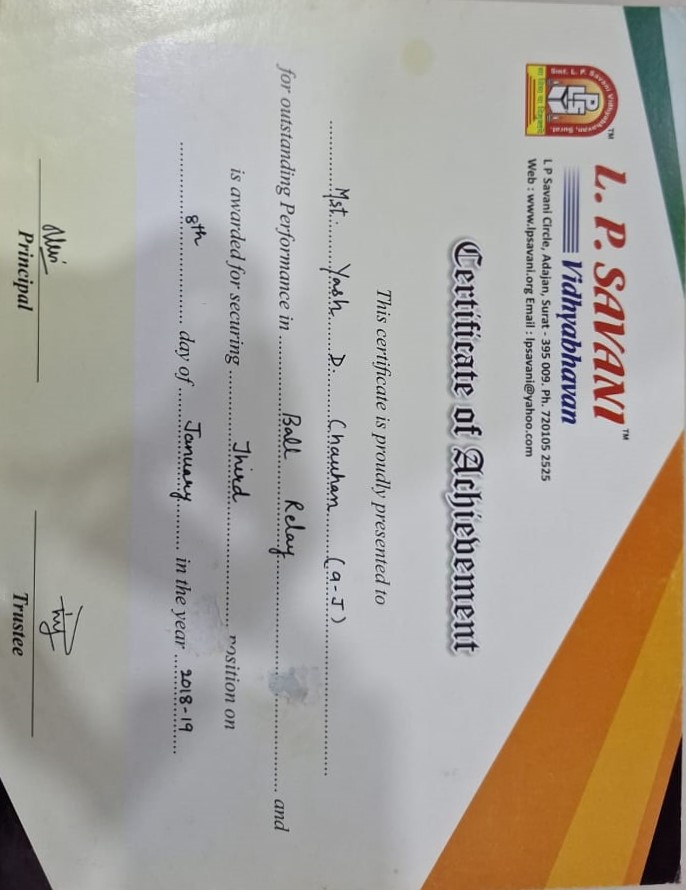 L. P. SAVANI™
Vidhyabhavan
L P Savani Circle, Adajan, Surat - 395 009. Ph. 720105 2525
Web : www.lpsavani.org Email : lpsavani@yahoo.com
Smt. L. P. Savani Vidhyabhavan, Surat. TM
LPS
Certificate of Achievement
This certificate is proudly presented to
Mst. Yash D. Chauhan (9-J)
for outstanding Performance in Ball Relay and
is awarded for securing Third position on
8th day of January in the year 2018-19
Principal
Trustee